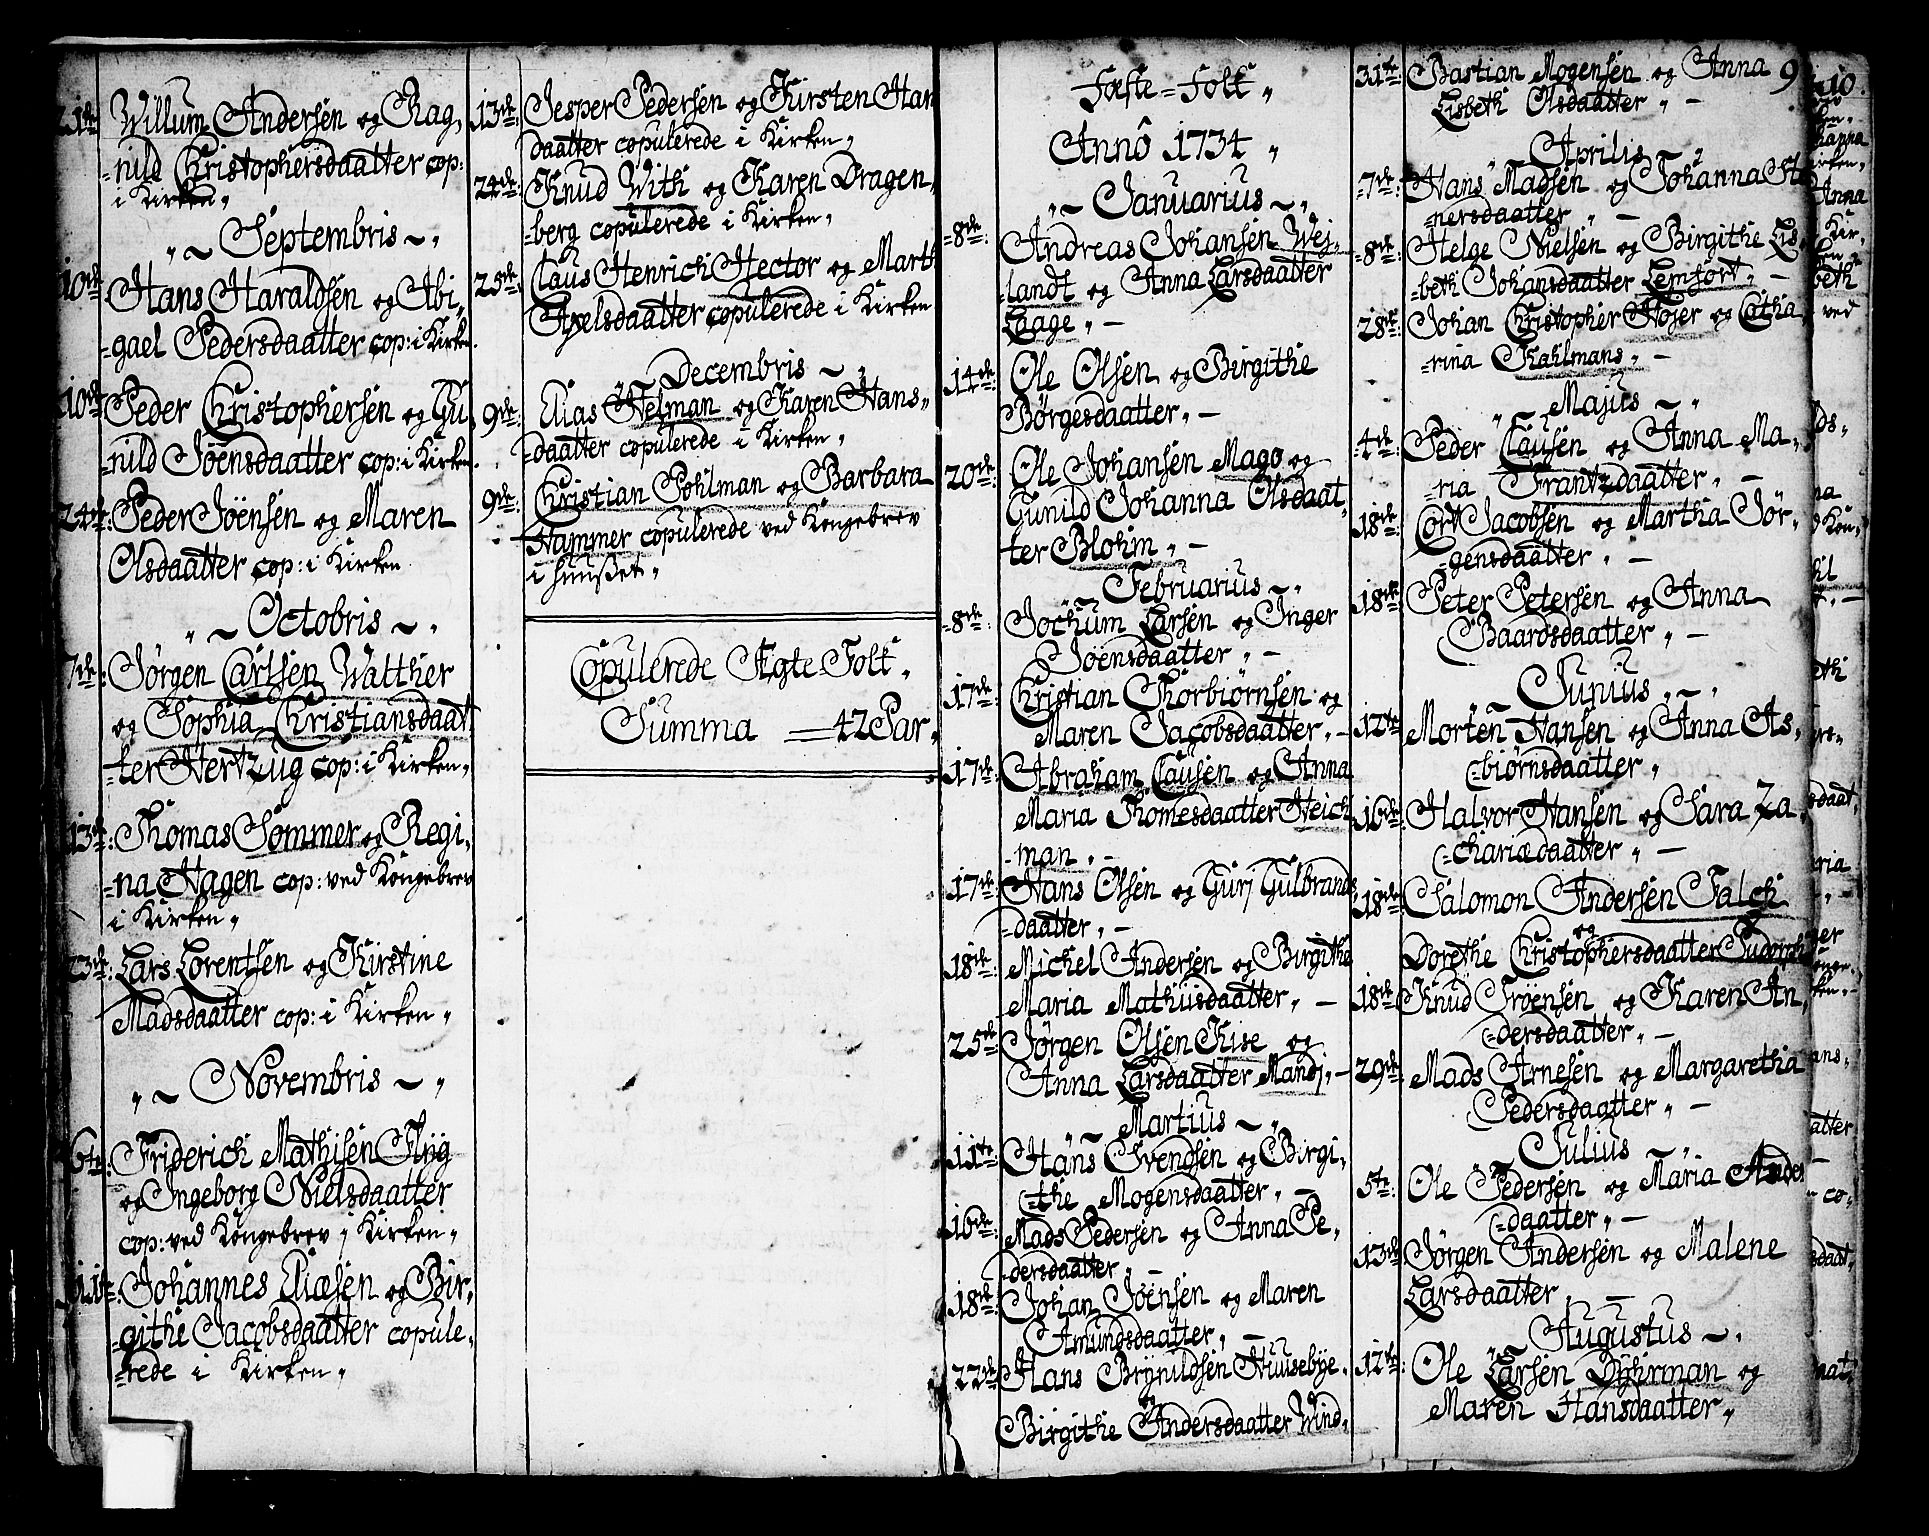 21de Willum Andersen og Rag„
=nild Christophersdaatter cop:
i Kirken„
„~ Septembris ~„
10de Hans Haraldsen og Abi„
=gael Pedersdaatter cop: i Kirken.
10de Peder Christophersen og Gu„
=nild Jöensdaatter cop: i Kirken.
24de Peder Jöensen og Maren
Olsdaatter cop: i Kirken
„~ Octobris ~„
7de: Jørgen Carlsen Walther
og Sophia Christiansdaat
ter Hertzug cop: i Kirken„
13de: Thomas Sommer og Regi„
=na Hagen cop: ved Kongebrev
i Kirken„
23de: Lars Lorentsen og Kirstine
Madsdaatter cop: i Kirken„
„~ Novembris ~„
6te: Friderich Mathisen Flyg
og Ingeborg Nielsdaatter
cop: ved Kongebrev i Kirken„
11te: Johannes Eliæsen og Bir„
githe Jacobsdaatter copule„
=rede i Kirken„
13de: Jesper Pedersen og Kirsten Han
daatter copulerede i Kirken„
24de: Knud With og Karen Dragen„
=berg copulerede i Kirken„
25de: Claus Henrich Hector og Marth
Axelsdaatter copulerede i Kirken
Decembris ~„
9de: Elias Helman og Karen Hans„
daatter copulerede i Kirken„
9de: Christian Pohlman og Barbara
Hammer copulerede ved Kongebrev
i Huuset„
Copulerede Ægte Folk„
Summa = 42 Par„
Fæste=Folk„
Annô 1734„
„~ Januarius ~„
=8de: Andreas Johansen Wej„
=landt og Anna Larsdaatter
Laage„—
14de: Ole Olsen og Birgithe
Börgesdaatter„—
20de: Ole Johansen Mago og
Gunild Johanna Olsdaat„
ter Blohm„—
Februarius ~„
=8de: Jochum Larsen og Inger
Jöensdaatter„—
17de: Christian Thorbiørnsen og
Maren Jacobsdaatter„—
17de: Abraham Clausen og Anna
Maria Thomesdaatter Heich
=man„—
17de: Hans Olsen og Gurj Gulbrands„
=daatter„—
18de: Michel Andersen og Birgithe
Maria Mathiisdaatter„—
25de: Jørgen Olsen Kise og
Anna Larsdaatter Mandj„—
„~ Martius ~„
11te: Hans Svendsen og Birgi„
=the Mogensdaatter„—
16de: Mads Pedersen og Anna Pe„
dersdaatter„—
18de: Johan Jöensen og Maren
Amundsdaatter„—
22de: Hans Brynildsen Huusebye
og
Birgithe Andersdaatter Wind„
31te: Bastian Mogensen og Anna 9
Lisbeth Olsdaatter„—
„ Aprilis ~„
=7de: Hans Madsen og Johanna Ste
nersdaatter„—
=8de: Helge Nielsen og Birgithe Lis„
=beth Johansdaatter Lemfort„—
28de: Johan Christopher Höjer og Catha„
rina Kahlmans„—
„~ Majus ~„
=4de: Peder Clausen og Anna Ma„
=ria Frantzdaatter„—
18de: Cort Jacobsen og Martha Jør„
=gensdaatter„—
18de: Peter Petersen og Anna
Baardsdaatter„—
„~ Junius ~„
12te: Morten Hansen og Anna As„
=biørnsdaatter„
16de: Halvor Hansen og Sara Za„
=chariædaatter„—
18de: Salomon Andersen Falch
og
Dorethe Christophersdaatter
18de: Knud Fröensen og Karen An„
=dersdaatter„—
29de: Mads Arnesen og Margaretha
Pedersdaatter„—
„~ Julius ~„
5te: Ole Pedersen og Maria Anders
=daatter„—
13de: Jørgen Andersen og Malene
Larsdaatter„—
„~ Augustus ~„
12te: Ole Larsen Dyhrman og
Maren Hansdaatter„
10.